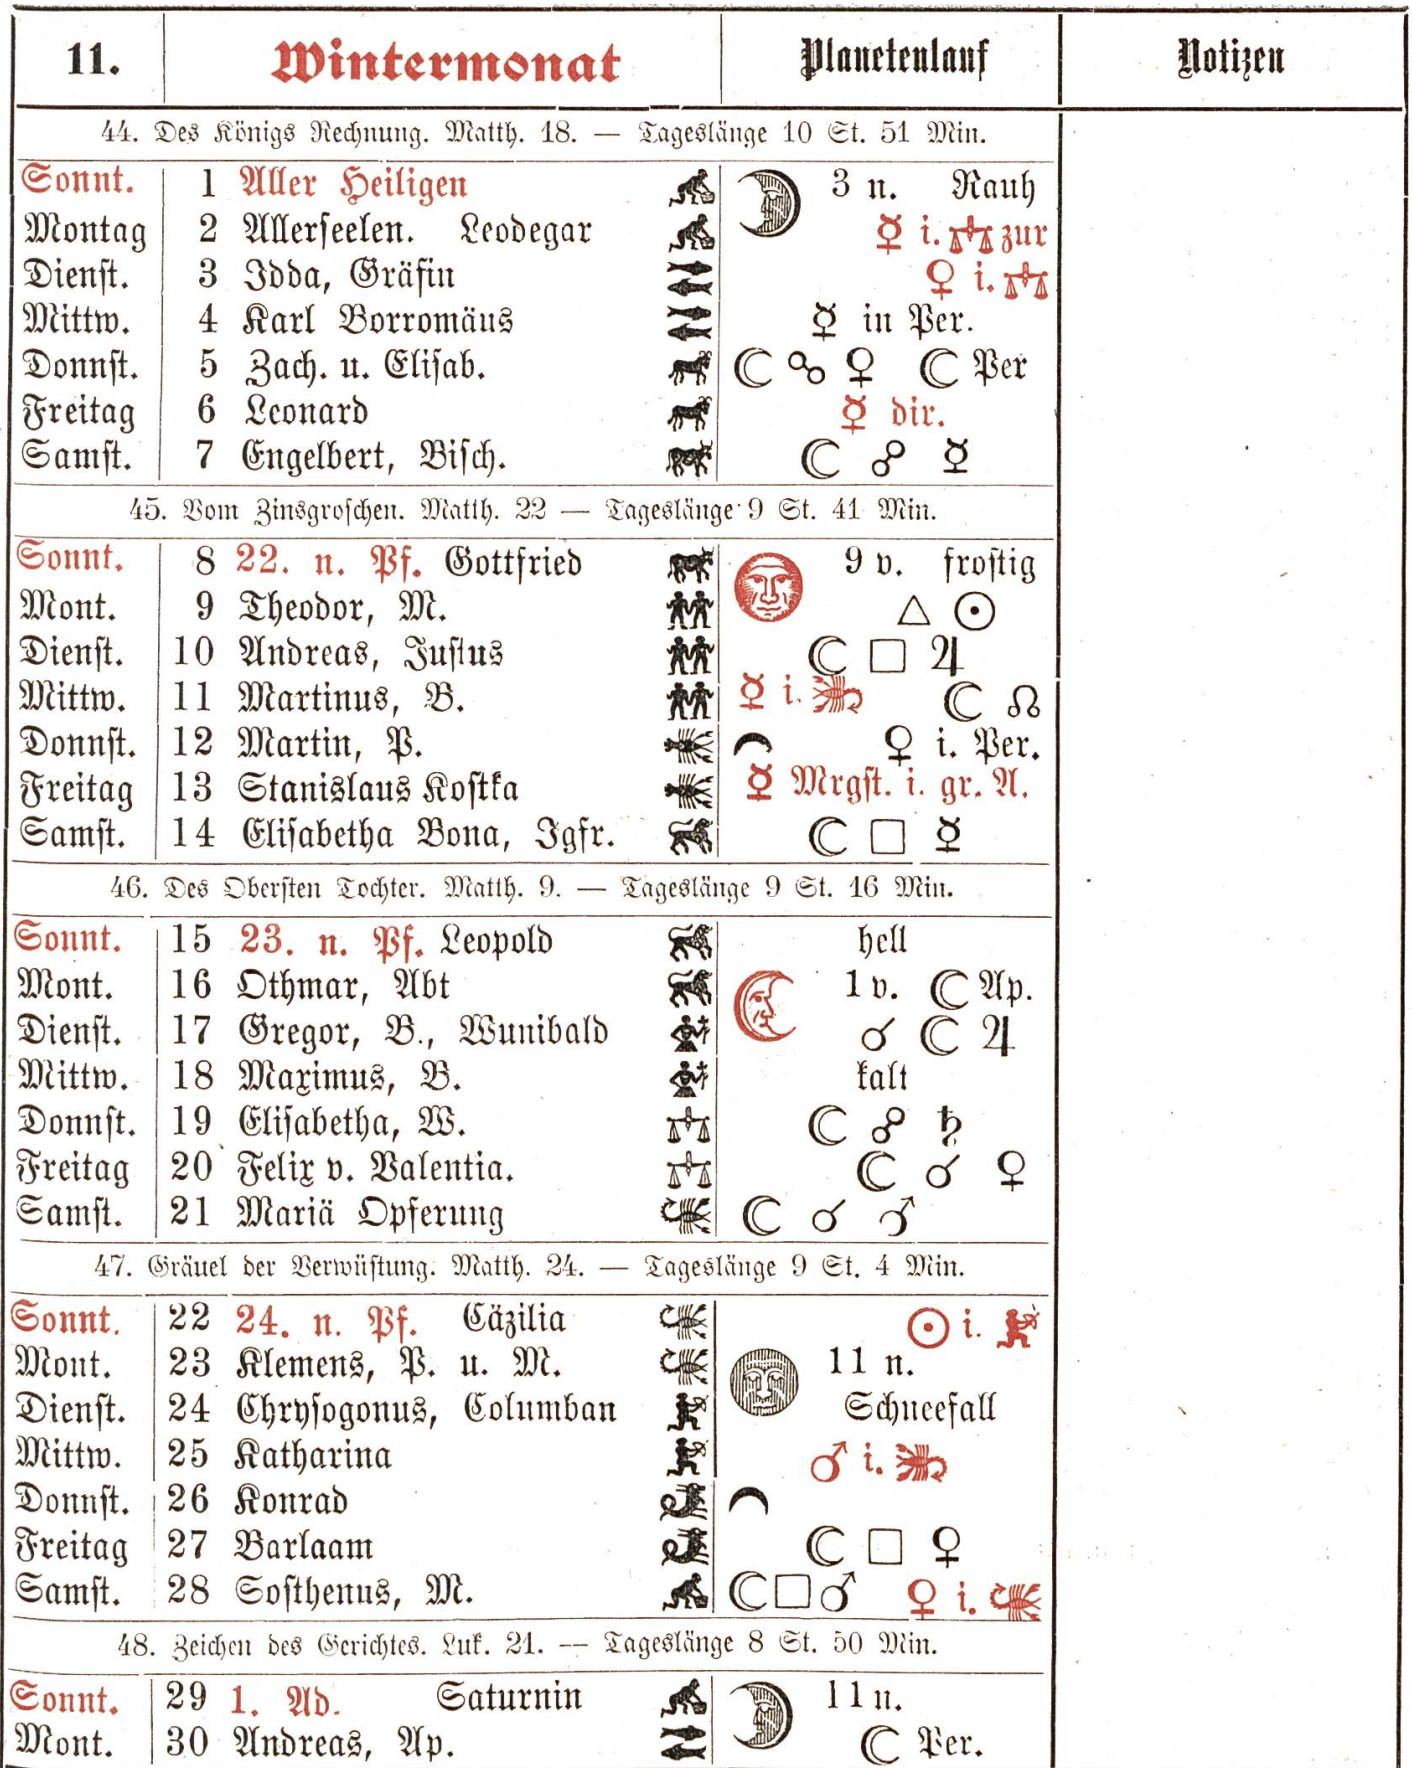 11. Wintermonat Planetenlauf Notizen
44. Des Königs Rechnung. Matth. 18. — Tageslänge 10 St. 51 Min.
Sonnt. 1 Aller Heiligen 3 n. Rauh
Montag 2 Allerseelen. Leodegar ☿ i. ♎ zur
Dienst. 3 Idda, Gräfin ♀ i. ♎
Mittw. 4 Karl Borromäus ☿ in Per.
Donnst. 5 Zach. u. Elisab. ☾ ☍ ♀ ☾ Per
Freitag 6 Leonard ☿ dir.
Samst. 7 Engelbert, Bisch. ☾ ☍ ☿
45. Vom Zinsgroschen. Matth. 22 — Tageslänge 9 St. 41 Min.
Sonnt. 8 22. n. Pf. Gottfried 9 v. frostig
Mont. 9 Theodor, M. △ ☉
Dienst. 10 Andreas, Justus ☾ □ ♃
Mittw. 11 Martinus, B. ☿ i. ♏ ☾ ☊
Donnst. 12 Martin, P. ♀ i. Per.
Freitag 13 Stanislaus Kostka ☿ Mrgst. i. gr. A.
Samst. 14 Elisabetha Bona, Igfr. ☾ □ ☿
46. Des Obersten Tochter. Matth. 9. — Tageslänge 9 St. 16 Min.
Sonnt. 15 23. n. Pf. Leopold hell
Mont. 16 Othmar, Abt 1 v. ☾ Ap.
Dienst. 17 Gregor, B., Wunibald ☌ ☾ ♃
Mittw. 18 Maximus, B. kalt
Donnst. 19 Elisabetha, W. ☾ ☍ ♄
Freitag 20 Felix v. Valentia. ☾ ☌ ♀
Samst. 21 Mariä Opferung ☾ ☌ ♂
47. Gräuel der Verwüstung. Matth. 24. — Tageslänge 9 St. 4 Min.
Sonnt. 22 24. n. Pf. Cäzilia ☉ i. ♐
Mont. 23 Klemens, P. u. M. 11 n.
Dienst. 24 Chrysogonus, Columban Schneefall
Mittw. 25 Katharina ♂ i. ♏
Donnst. 26 Konrad
Freitag 27 Barlaam ☾ □ ♀
Samst. 28 Sosthenus, M. ☾ □ ♂ ♀ i. ♏
48. Zeichen des Gerichtes. Luk. 21. — Tageslänge 8 St. 50 Min.
Sonnt. 29 1. Ad. Saturnin 11 n.
Mont. 30 Andreas, Ap. ☾ Per.